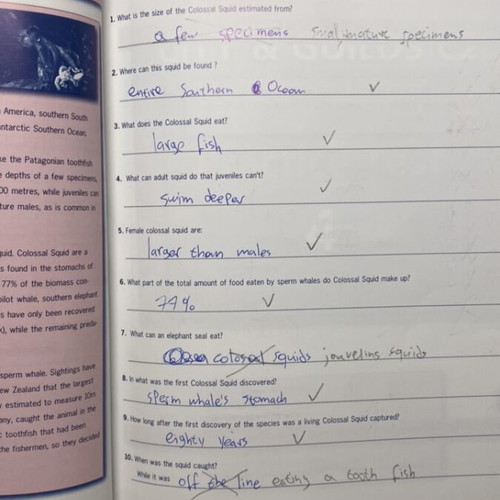 America, southern South
ntarctic Southern Ocean.
e the Patagonian toothfish
e depths of a few specimens,
00 metres, while juveniles can
ture males, as is common in
quid. Colossal Squid are a
s found in the stomachs of
77% of the biomass con-
pilot whale, southern elephant
s have only been recovered
, while the remaining preda-
sperm whale. Sightings have
ew Zealand that the largest
y estimated to measure 10m
any, caught the animal in the
c toothfish that had been
the fishermen, so they decided
1. What is the size of the Colossal Squid estimated from?
a few specimens small,mature specimens
2. Where can this squid be found ?
entire Southern Ocean ✓
3. What does the Colossal Squid eat?
large fish ✓
4. What can adult squid do that juveniles can't?
swim deeper ✓
5. Female colossal squid are:
larger than males ✓
6. What part of the total amount of food eaten by sperm whales do Colossal Squid make up?
77% ✓
7. What can an elephant seal eat?
squids squids
8. In what was the first Colossal Squid discovered?
sperm whale's stomach ✓
9. How long after the first discovery of the species was a living Colossal Squid captured?
eighty years ✓
10. When was the squid caught?
While it was off the line eating a tooth fish